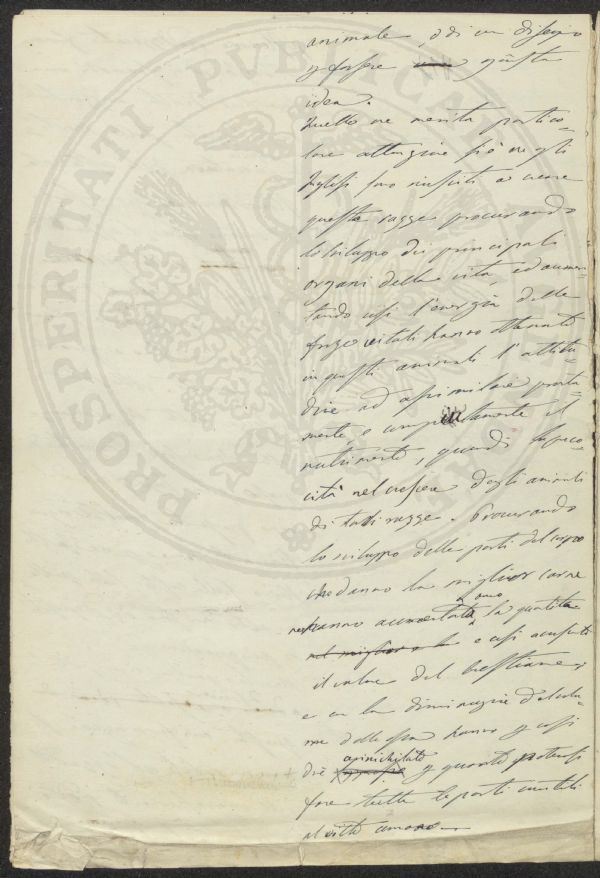 animale, o di un disegno
p fosse giusta
idea.
Quello che merita partico-
lare attenzione si è che gli
Inglesi sono riusciti a creare
queste razze procurando
lo sviluppo dei principali
organi della vita, ed aumen-
tando così l'energia delle
forze vitali hanno ottenuto
in questi animali l'attitu-
dine ad assimilare pronta-
mente e completamente il
nutrimento, quindi la preco-
cità nel crescere degli animali
di tali razze. Procurando
lo sviluppo delle parti del corpo
che danno la miglior carne
ne hanno aumentata la quantità
e così accresciuto
il valore del bestiame,
e con la diminuzione del volu-
me delle ossa hanno p così
dire annichilato p quanto potessi
fare tutte le parti inutili
al vitto umano
PROSPERITATI PUBLICAE